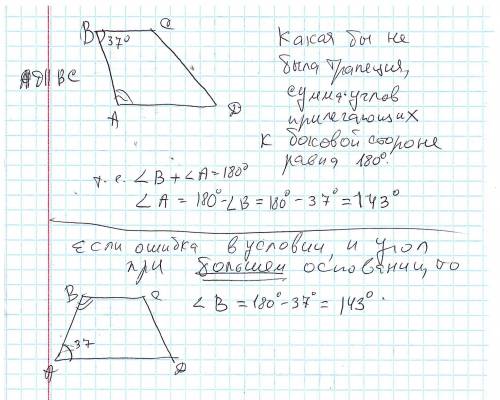 B C
37°
A D
AD ∥ BC
Какая бы не
была трапеция,
сумма углов
прилегающих
к боковой стороне
равна 180°.
т.е. ∠B + ∠A = 180°
∠A = 180° - ∠B = 180° - 37° = 143°
Если ошибка в условии, и угол
при большем основании, то
B C
∠B = 180° - 37° = 143°.
37
A D